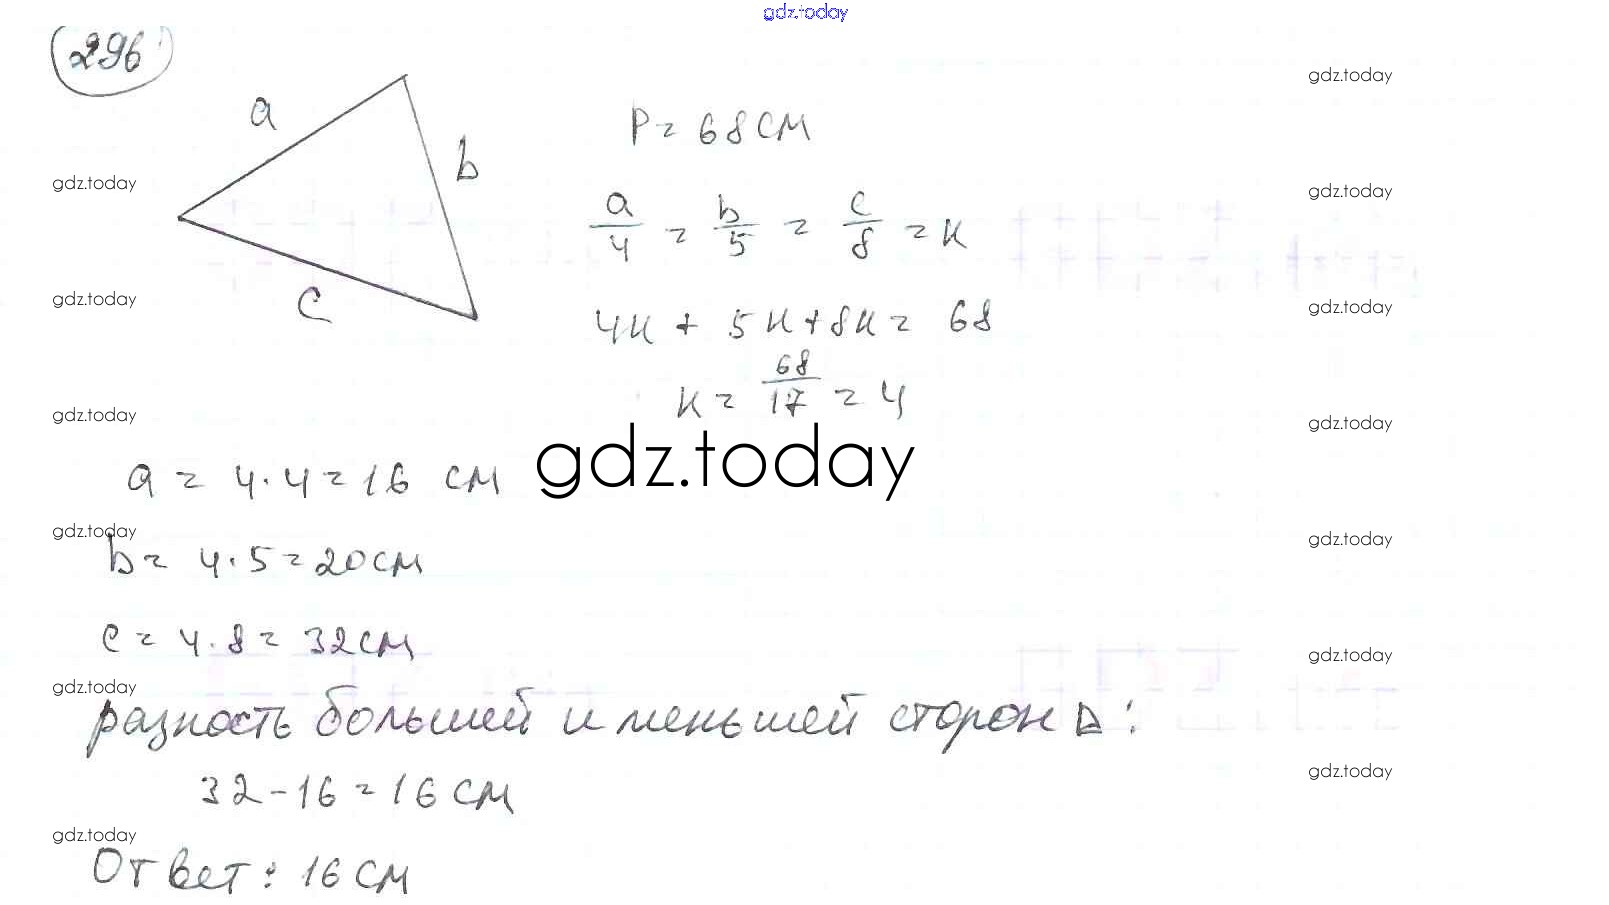 gdz.today
296
a
b
c
P = 68 см
a/4 = b/5 = c/8 = к
4к + 5к + 8к = 68
к = 68/17 = 4
a = 4·4 = 16 см
b = 4·5 = 20 см
c = 4·8 = 32 см
разность большей и меньшей сторон Δ:
32 - 16 = 16 см
Ответ: 16 см
gdz.today
gdz.today
gdz.today
gdz.today
gdz.today
gdz.today
gdz.today
gdz.today
gdz.today
gdz.today
gdz.today
gdz.today
gdz.today
gdz.today